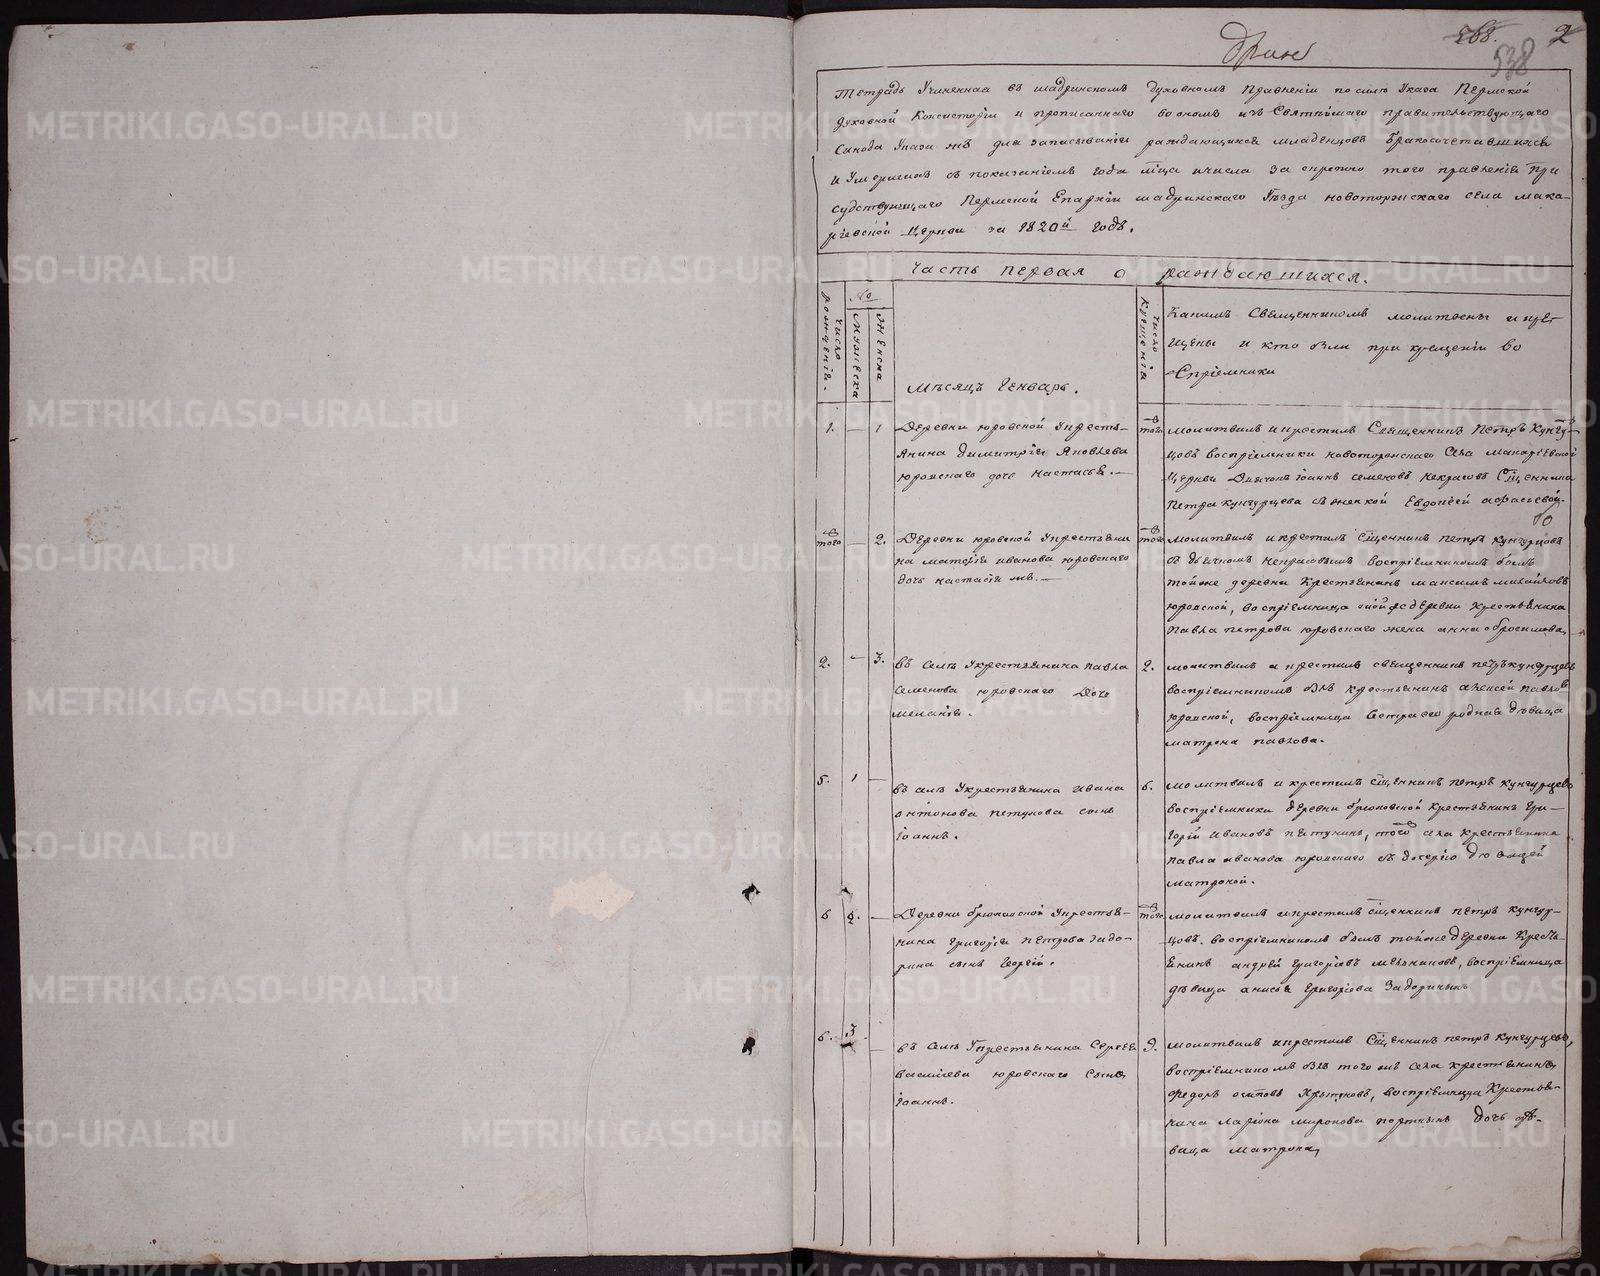 268. 2
538
Тетрадь Учиненная въ шадринскомъ духовномъ правленіи по силѣ Указа Пермской
духовной Консисторіи и прописаннаго во ономъ изъ Святѣйшаго правительствующаго
Синода Указа жъ для записыванія раждающихся младенцовъ Бракосочетавшихся
и Умершихъ съ показаніемъ года мца и числа за скрепою того правленія При
судствующаго Пермской Епархіи шадринскаго Уѣзда новоторжскаго села мака-
ріевской Церкви за 1820й годъ.
Часть первая о раждающихся.
Число рожденія.
№
Мужеска
Женска
Мѣсяцъ Генварь.
Число крещенія
Какимъ Священникомъ молитвены и кре-
щены и кто были при крещеніи во
спріемники
1. — 1 Деревни юровской Укресть-
янина димитрія Яковлева
юровскаго дочь настасья. —
того молитвилъ и крестилъ Священникъ Петръ Кунгу-
цовъ воспріемники новоторжскаго Села макаріевской
Церкви Дьячокъ іоаннъ семеновъ некрасовъ Сщенника
Петра кунгурцева съ женкой Евдокіей
того — 2. Деревни юровской Укрестьяни
на матвія иванова юровскаго
дочь настасія жъ. —
того молитвилъ и крестилъ Сщенникъ петръ кунгурцовъ
съ дьячкомъ некрасовымъ воспріемникомъ былъ
тойже деревни Крестьянинъ максимъ михайловъ
юровской, воспріемница деревни крестьянина
Павла петрова юровскаго жена анна
2. - 3. въ селѣ Укрестьянина павла
семенова юровскаго дочь
меланія.
2. молитвилъ и крестилъ священникъ петръ кунгурцевъ
воспріемникомъ былъ крестьянинъ алексей павловъ
юровской, воспріемница Сестра его родная дѣвица
матрена павлова.
5. 1 — въ селѣ Укрестьянина Ивана
антонова петухова сынъ
іоаннъ.
6. молитвилъ и крестилъ сщенникъ петръ кунгурцевъ
воспріемники деревни брюховской Крестьянинъ Гри-
горій Ивановъ петухинъ, того села крестьянина
павла иванова юровскаго съ дочерію дѣвицей
матроной.
6 2. — Деревни брюховской Укрестья-
нина григорія петрова задо-
рина сынъ Георгій.
того молитвилъ и крестилъ сщенникъ петръ кунгур-
цовъ. воспріемникомъ былъ тойже деревни Кресть-
янинъ андрей григоріевъ мельниковъ, воспріемница
дѣвица анисья григоріева Задорина
6. 3 — въ селѣ Укрестьянина Сергея
василіева юровскаго Сынъ
іоаннъ.
9. молитвилъ и крестилъ Сщенникъ петръ кунгурцевъ,
воспріемникомъ былъ того жъ села крестьянинъ
федоръ осиповъ, воспріемница Крестья-
нина Ларіона миронова дочь дѣ-
вица матрона,
METRIKI.GASO-URAL.RU